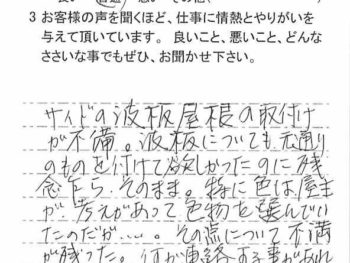 3 お客様の声を聞くほど、仕事に情熱とやりがいを
与えて頂いています。良いこと、悪いこと、どんな
ささいな事でもぜひ、お聞かせ下さい。
サイドの波板屋根の取付け
が不備。波板についても元通り
のものを付けて欲しかったのに残
念乍ら、そのまま。特に色は屋主
が、考えがあって色物を選んでい
たのだが‥‥。その点について不満
が残った。何か連絡する事があれ